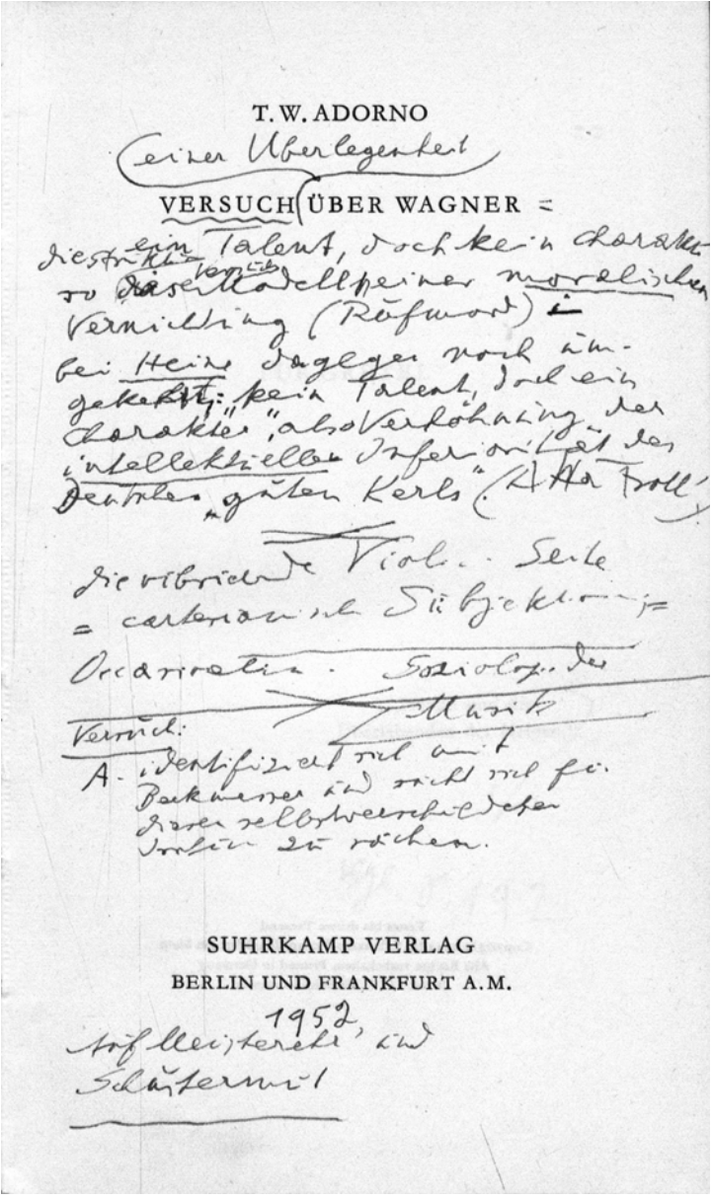 T. W. ADORNO
(einer Überlegenheit)
VERSUCH ÜBER WAGNER =
ein Talent, doch kein Charakter
so dieser Modell seiner moralischen
Vernichtung (Rufmord)
bei Heine dagegen noch um-
gekehrt: „kein Talent, doch ein
Charakter", also Verhöhnung der
intellektuellen Inferiorität des
Deutschen „guten Kerls". (Atta Troll)
die vibrierende Seite
= cartesianische Subjektion; =
Soziolog. der
Musik
Versuch:
A. identifiziert sich mit
Beckmesser und sucht sich für
diesen selbstverschuldeten
zu rächen.
SUHRKAMP VERLAG
BERLIN UND FRANKFURT A. M.
1952,
auf Meisterehr' und